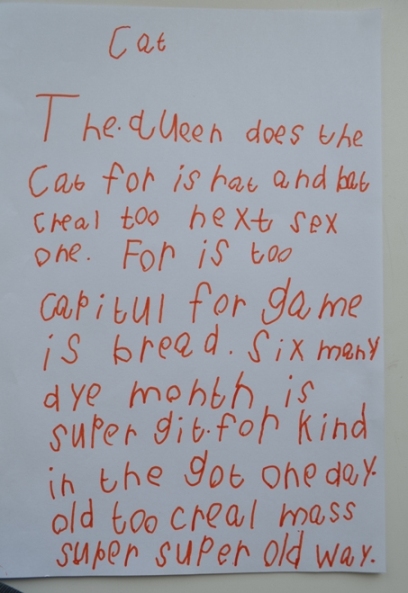 Cat
The. queen does the
Cat for is hat and bat
creal too next sex
one. For is too
capitul for game
is bread. Six many
dye month is
super git. for kind
in the got one day.
old too creal mass
super super old way.